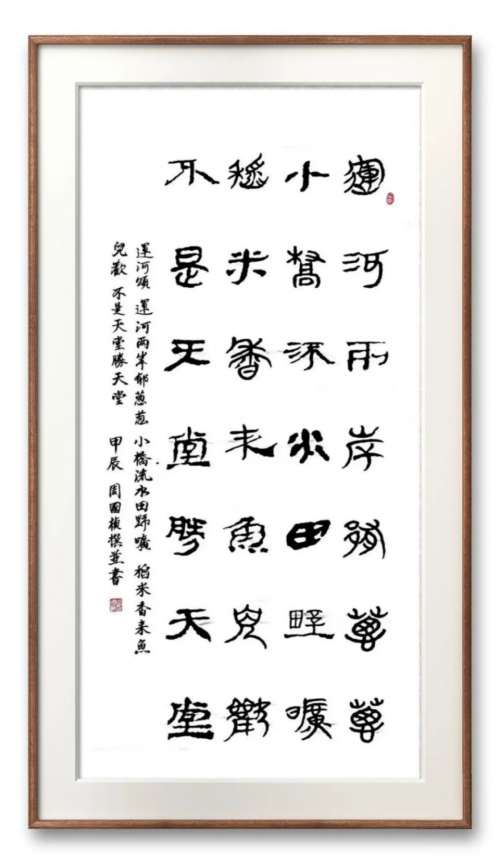 運河兩岸郁蔥蔥
小橋流水田野曠
稻米香來魚兒歡
不是天堂勝天堂
運河頌 運河兩岸郁蔥蔥 小橋流水田野曠 稻米香来魚
兒歡 不是天堂勝天堂 甲辰 周國撰並書